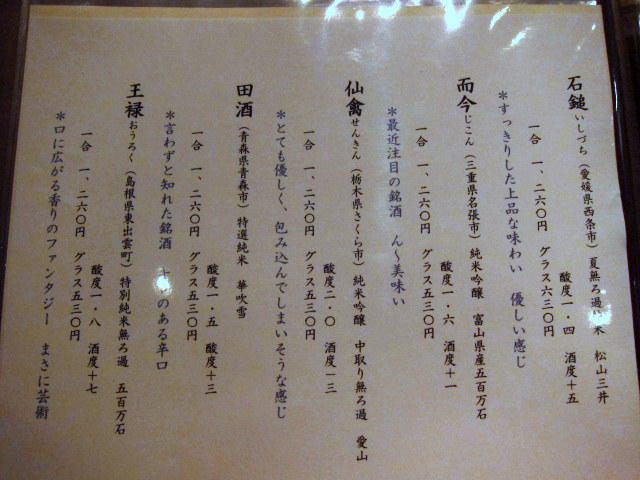 石鎚 いしづち (愛媛県西条市) 夏無ろ過 米 松山三井
酸度一・四 酒度十五
一合 一、二六〇円 グラス六三〇円
*すっきりした上品な味わい 優しい感じ
而今 じこん (三重県名張市) 純米吟醸 富山県産五百万石
酸度一・六 酒度十一
一合 一、二六〇円 グラス五三〇円
*最近注目の銘酒 ん〜美味い
仙禽 せんきん (栃木県さくら市) 純米吟醸 中取り無ろ過 愛山
酸度二・〇 酒度一三
一合 一、二六〇円 グラス五三〇円
*とても優しく、包み込んでしまいそうな感じ
田酒 (青森県青森市) 特選純米 華吹雪
酸度一・五 酸度十三
一合 一、二六〇円 グラス五三〇円
*言わずと知れた銘酒 のある辛口
王禄 おうろく (島根県東出雲町) 特別純米無ろ過 五百万石
酸度一・八 酒度十七
一合 一、二六〇円 グラス五三〇円
*口に広がる香りのファンタジー まさに芸術